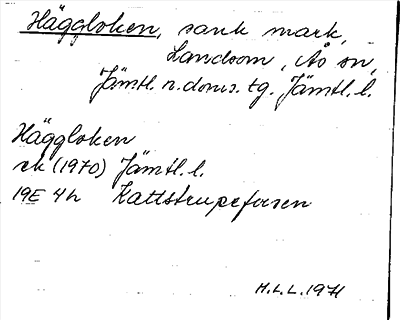 Häggloken, sank mark,
Landsom, Ås sn,
Jämtl. n. doms. tg. Jämtl. l.
Häggloken
ek (1970) Jämtl. l.
19E 4h Kattstrupeforsen
M.L.L. 1971